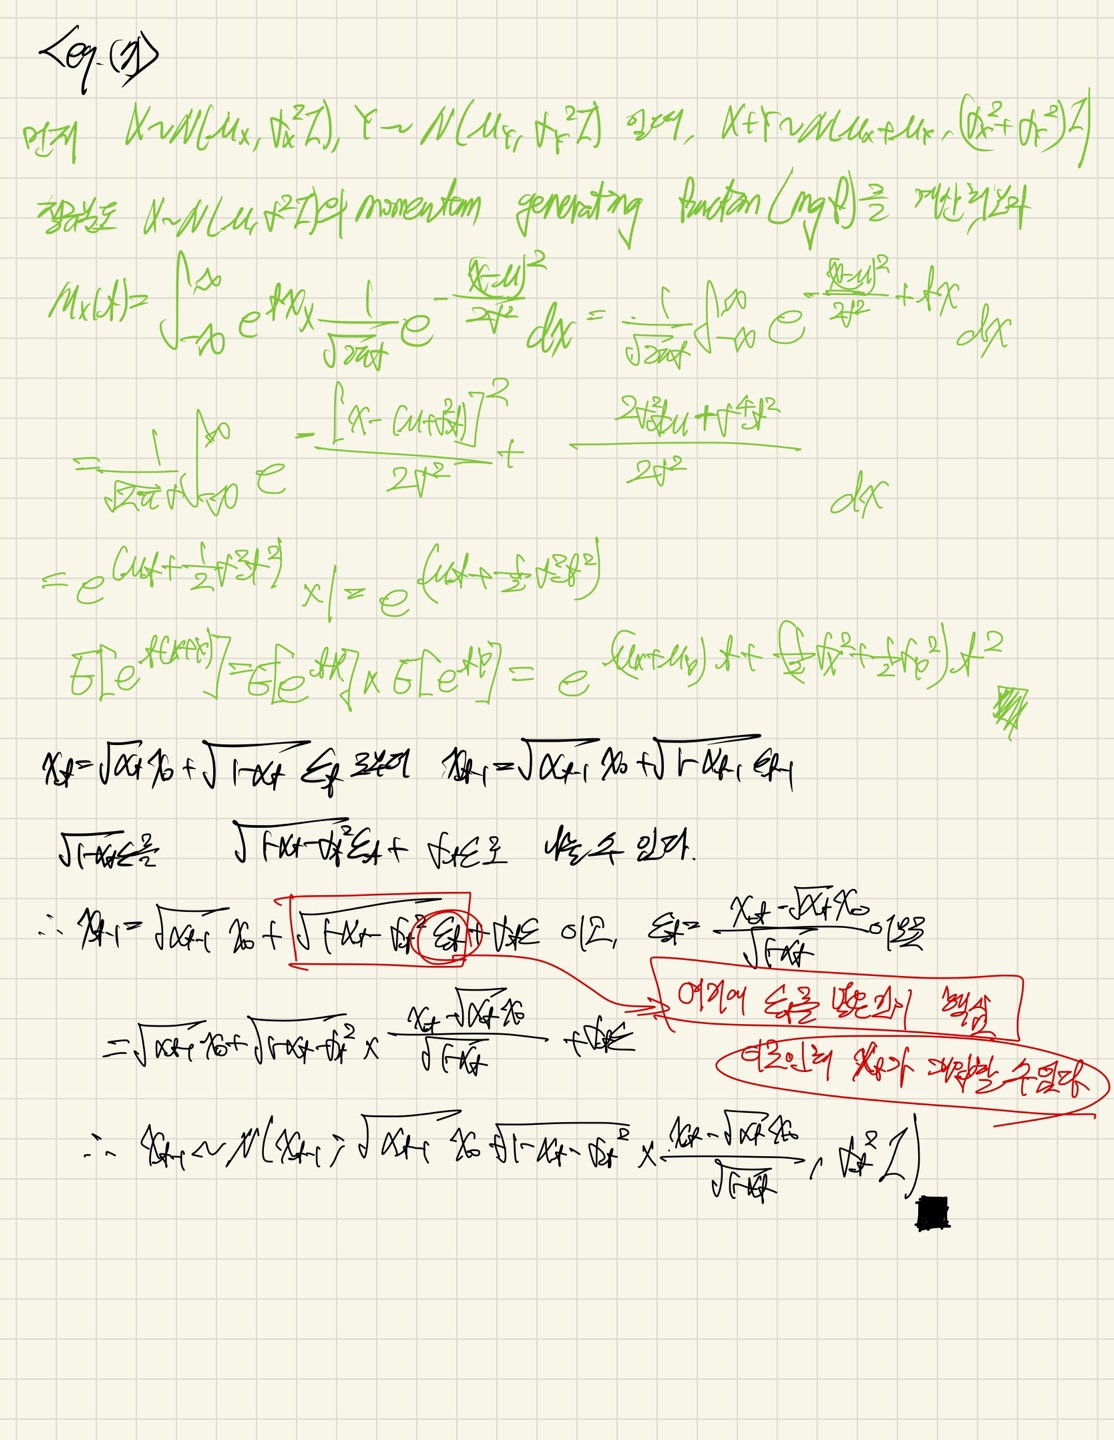 <eq.(7)>
먼저 X~N(μ_X, σ_X²I), Y~N(μ_Y, σ_Y²I) 일 때, X+Y~N(μ_X+μ_Y, (σ_X²+σ_Y²)I)
X~N(μ, σ²I)의 momentom generating function(mgf)를 계산해보자
M_X(t)= ∫_{-∞}^{∞} e^{tx} × 1/(√2π σ) e^{-(x-μ)²/2σ²} dx = 1/(√2π σ) ∫_{-∞}^{∞} e^{-(x-μ)²/2σ² + tx} dx
= 1/(√2π σ) ∫_{-∞}^{∞} e^{-[x-(μ+σ²t)]²/2σ² + (2σ²tμ+σ⁴t²)/2σ²} dx
= e^{(μt+½σ²t²)} ×1 = e^{(μt+½σ²t²)}
E[e^{t(X+Y)}]=E[e^{tX}]×E[e^{tY}]= e^{(μ_X+μ_Y)t+(½σ_X²+½σ_Y²)t²}
x_t=√α_t x_0+√(1-α_t) ε_t 로부터 x_{t-1}=√α_{t-1} x_0+√(1-α_{t-1}) ε_{t-1}
√(1-α_t) ε를 √(1-α_t-σ_t²) ε_t+σ_t ε로 나눌 수 있다.
∴ x_{t-1}=√α_{t-1} x_0+√(1-α_t-σ_t²) ε_t+σ_t ε 이고, ε_t=(x_t-√α_t x_0)/√(1-α_t) 이므로
여기에 ε_t를 넣은 것이 핵심
=√α_{t-1} x_0+√(1-α_t-σ_t²) × (x_t-√α_t x_0)/√(1-α_t) +σ_t ε
이로인해 x_t가 개입할 수 있다
∴ x_{t-1}~N(x_{t-1}; √α_{t-1} x_0+√(1-α_t-σ_t²) × (x_t-√α_t x_0)/√(1-α_t), σ_t² I)